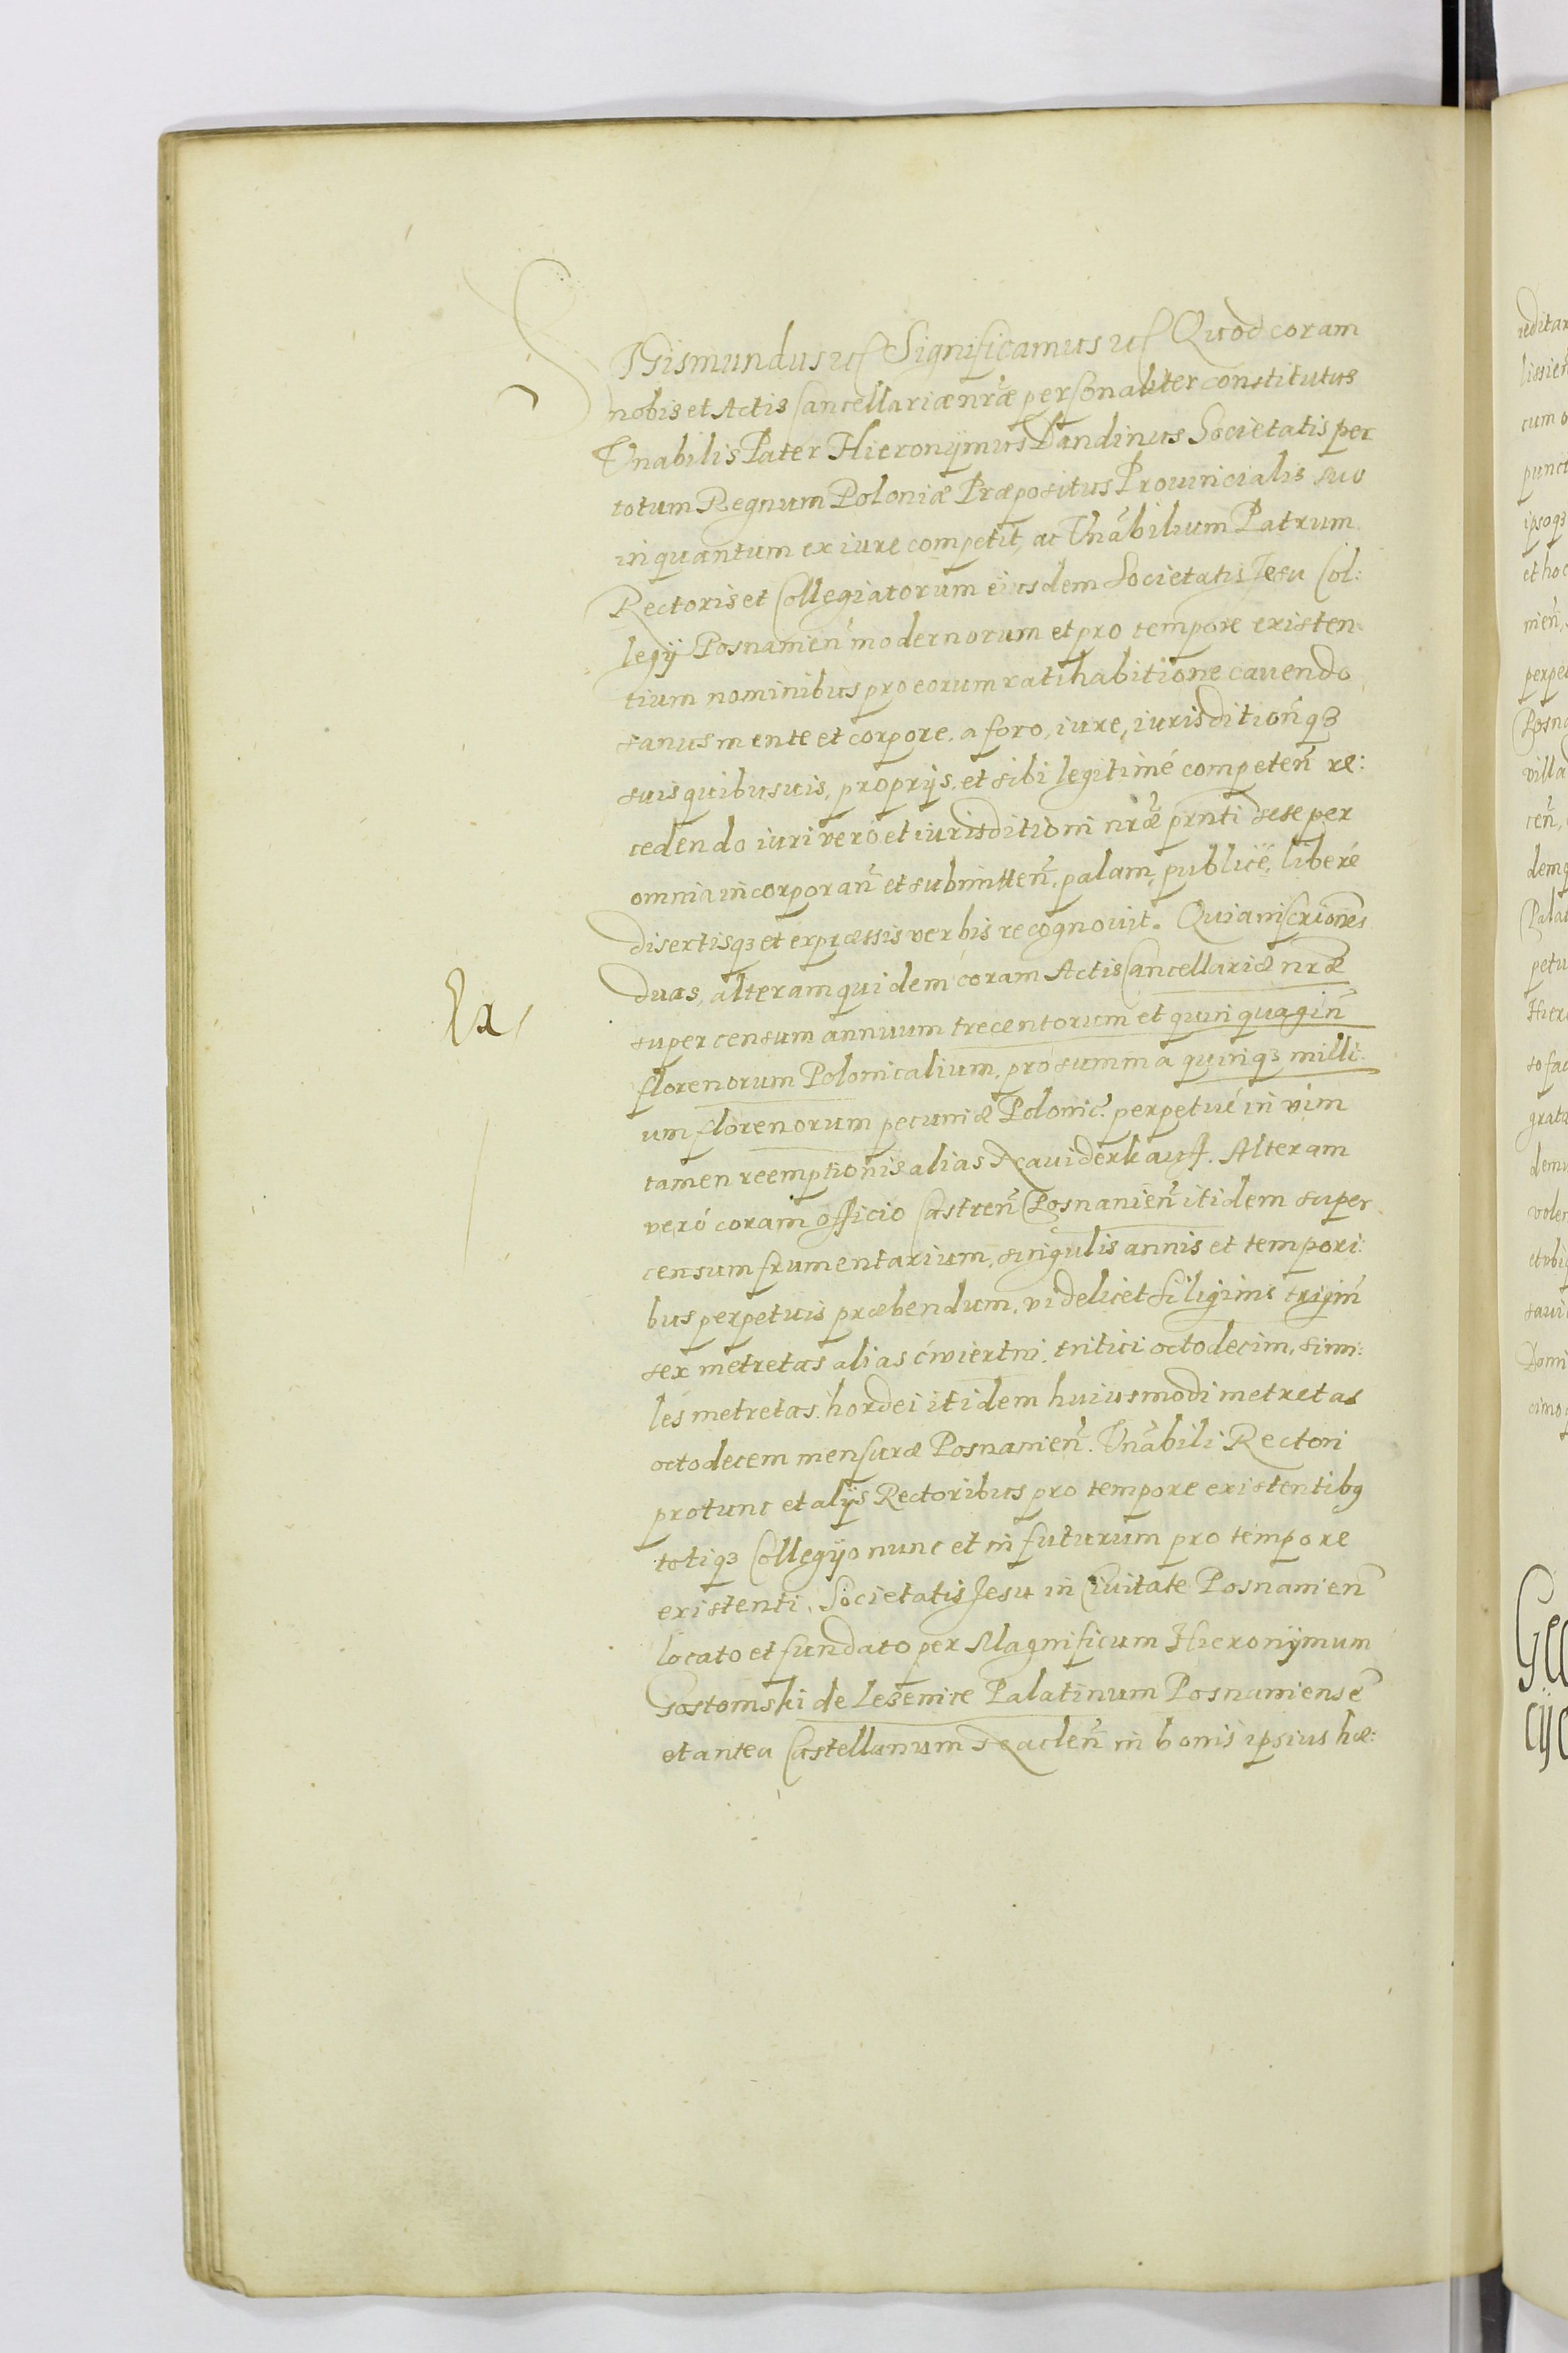 SIgismundus etc Significamus etc Quod coram
nobis et Actis Cancellariæ nr̃æ personaliter constitutus
Vnabilis Pater Hieronÿmus Dandinus Societatis per
totum Regnum Poloniæ Præpositus Prouincialis suo
in quantum ex iure competit, ac Vnãbilium Patrum
Rectoris et Collegiatorum eiusdem Societatis Jesu Col:
legÿ Posnanien̄ modernorum et pro tempore existen:
tium nominibus pro eorum ratihabitione cauendo
sanus mente et corpore, a foro, iure, iurisdition̄q3
suis quibusuis, proprÿs, et sibi legitimé competen̄ re:
cedendo iuri vero et iurisditioni nr̃æ prn̄ti sese per
omnia incorporan̄ et submitten̄, palam, publicé, liberé
disertisq3 et expræssis verbis recognouit. Quia inscriones
duas, alteram quidem coram Actis Cancellariæ nr̃æ
super censum annuum trecentorum et quinquagin̄
Ex
florenorum Polonicalium, pro summa quinq3 milli:
um florenorum pecuniæ Polonic̄ perpetué in vim
tamen reemptionis alias Na widerkauff. Alteram
veró coram officio Castren̄ Posnanien̄ itidem super
censum frumentarium, singulis annis et tempori:
bus perpetuis præbendum, videlicet siliginis trigin̄
sex metretas alias ćwiertni, tritici octodecim, simi:
les metretas, hordei itidem huiusmodi metretas
octodecem mensuræ Posnanien̄. Vnãbili Rectori
protunc et alÿs Rectoribus pro tempore existentib9
totiq3 Collegÿo nunc et in futurum pro tempore
existenti, Societatis Jesu in Ciuitate Posnanien̄
locato et fundato per Magnificum Hieronÿmum
Gostomski de Lezenice Palatinum Posnaniensē
et antea Castellanum Naclen̄ in bonis ipsius hæ: